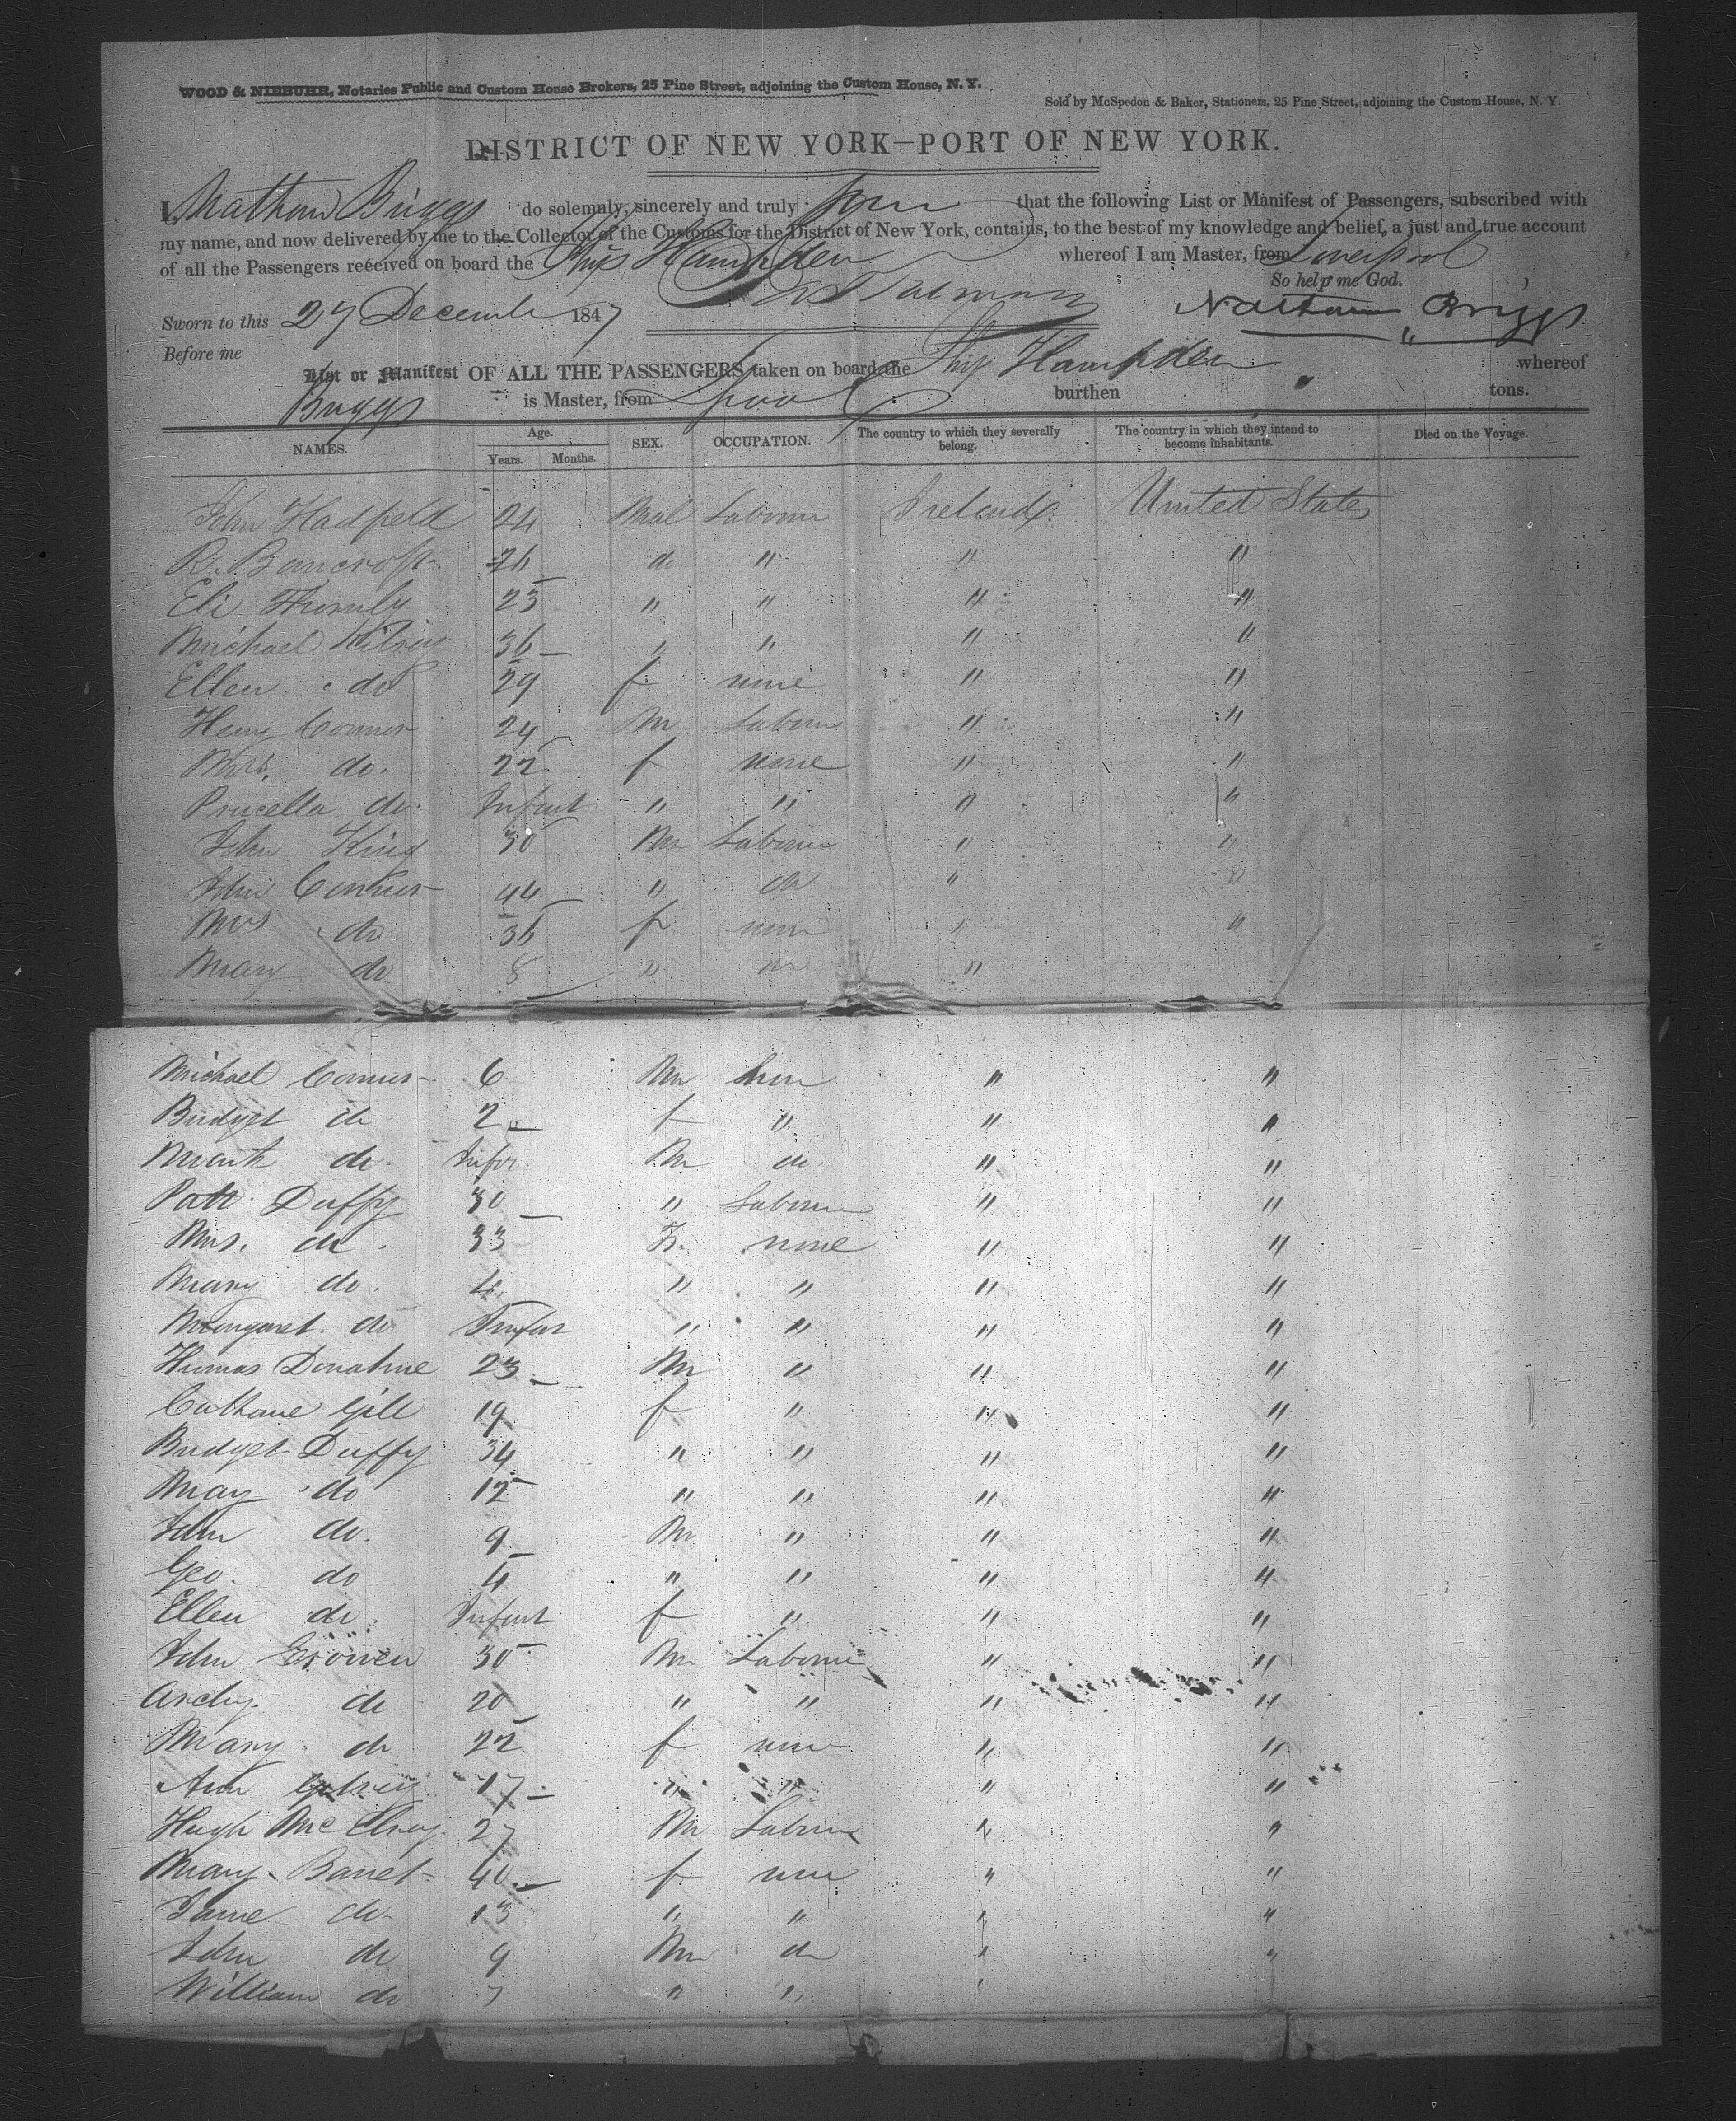 WOOD & NIEBUHR, Notaries Public and Custom House Brokers, 25 Pine Street, adjoining the Custom House, N. Y.
Sold by McSpedon & Baker, Stationers, 25 Pine Street, adjoining the Custom House, N. Y.
DISTRICT OF NEW YORK—PORT OF NEW YORK.
I, Nathan Briggs do solemnly, sincerely and truly that the following List or Manifest of Passengers, subscribed with
my name, and now delivered by me to the Collector of the Customs for the District of New York, contains, to the best of my knowledge and belief, a just and true account
of all the Passengers received on board the Ship Hampden whereof I am Master, from Liverpool
So help me God.
Sworn to this 27 December 1847 Nathan Briggs
Before me
List or Manifest OF ALL THE PASSENGERS taken on board the Ship Hampden whereof
Briggs is Master, from Lpool burthen tons.
NAMES. Age. Years. Months. SEX. OCCUPATION. The country to which they severally belong. The country in which they intend to become inhabitants. Died on the Voyage.
John Hadfield 24 Mal Labourer Ireland United States
B. Bancroft 26 do " " "
Eli 23 " " " "
Michael 36 " " " "
Ellen do 29 f none " "
Henry Connor 24 M Labour " "
Mrs. do. 22 f none " "
do. Infant " " " "
John King 30 M Labourer " "
John Connor 44 " do " "
Mrs do 36 f none " "
Mary do 8 " "
Michael Connor 6 M " "
Bridget do 2 f " " "
do. Infa M do. " "
Patr. Duffy 30 " Labour " "
Mrs. do. 33 F. none " "
Mary do. 4 " " " "
Margaret do Infan " " " "
Thomas Donahue 23 M " " "
Catharine Gill 19 f " " "
Bridget Duffy 34 " " " "
Mary do 12 " " " "
John do. 9 M " " "
Geo. do 4 " " " "
Ellen do. Infant f " " "
John 30 M Labourer " "
Archy do 20 " " " "
Mary do 22 f none " "
Ann 17 " " " "
Hugh McElroy 27 M Labour " "
Mary Barret 40 f none " "
Jane do 13 " " " "
John do 9 M do " "
William do 7 " " "